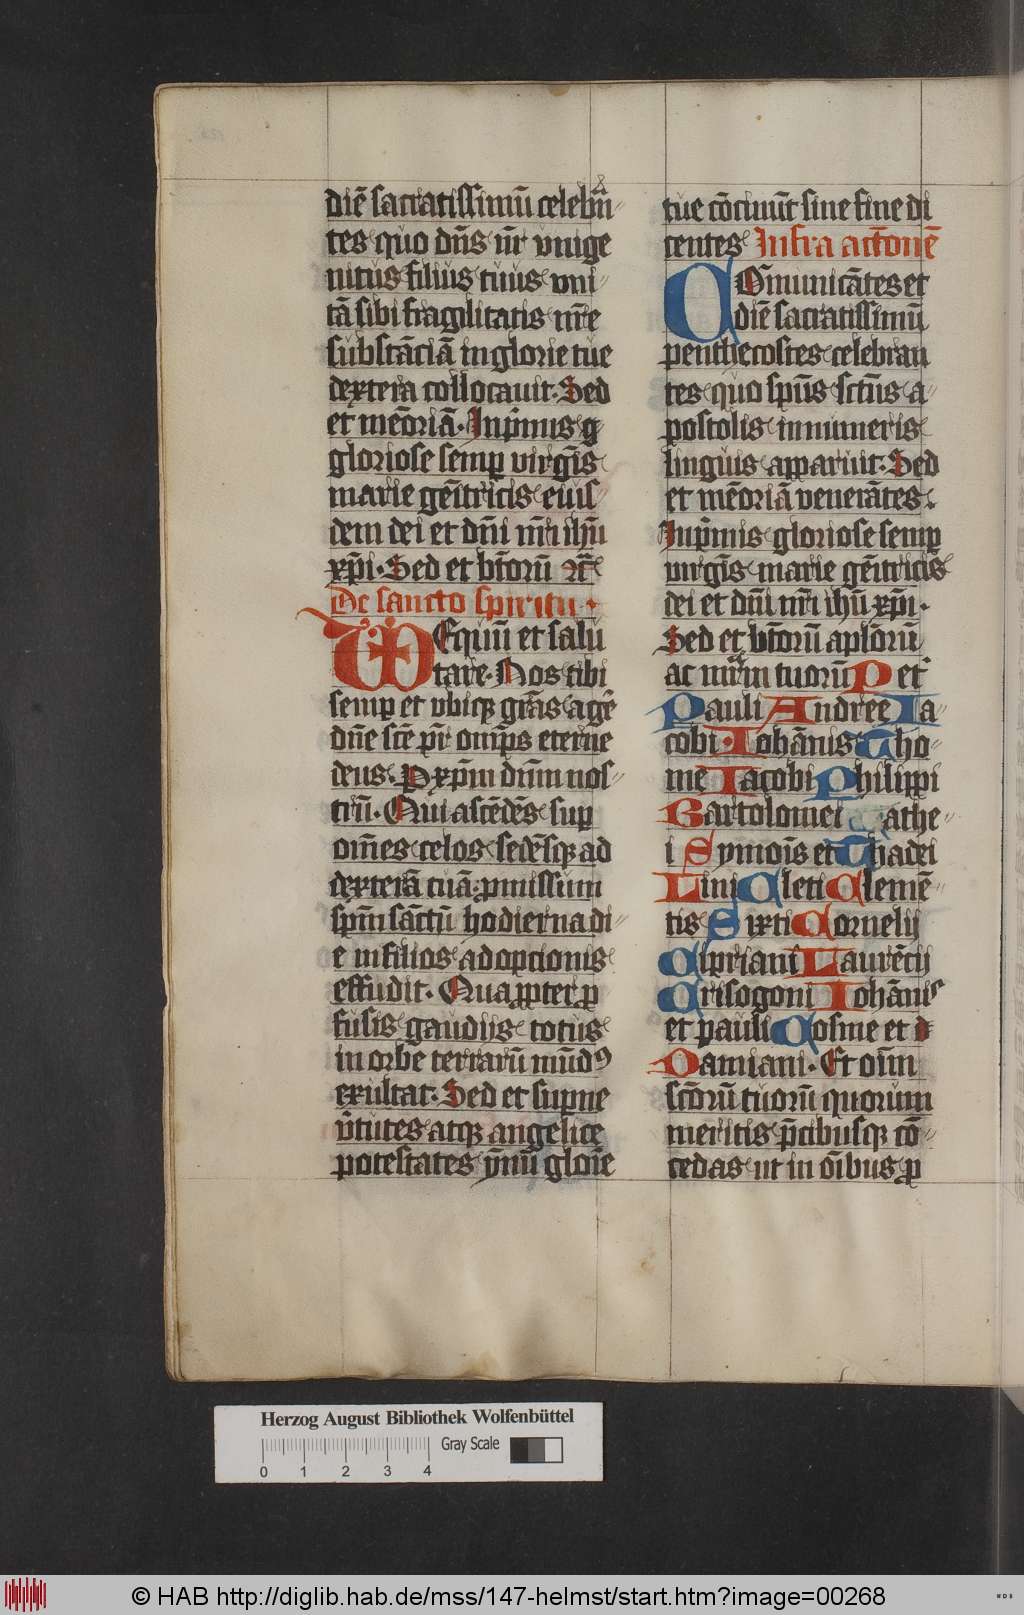 diē sacratissimū celebrā
tes quo dn̄s nr̄ vnige
nitus filius tuus vni
tā sibi fragilitatis nr̄e
substāciā in glorie tue
dextera collocauit. Sed
et mēoriā. Inp̄mis ꝙ
gloriose semꝑ virgīs
marie gēitricis eius
dem dei et dn̄i nr̄i ihū
xp̄i. Sed et bt̄orū
De sancto spiritu
VEre dignū Equū et salu
tare. Nos tibi
semꝑ et vbiqꝫ grās agē
dn̄e sc̄e pr̄ omp̄s eterne
deus. P xp̄m dn̄m nos
trū. Qui ascēdēs suꝑ
om̄es celos sedēsqꝫ ad
dexterā tuā ꝓmissum
sp̄m sāctū hodierna di
e in filios adoptionis
effudit. Quaꝓpter ꝓ
fusis gaudijs totus
in orbe terrarū mūdꝰ
exultat. Sed et suꝑne
v̄tutes atqꝫ angelice
potestates ym̄nū glorie
tue cōcinūt sine fine di
centes Infra actōnē
COm̄unicātes et
diē sacratissimū
penthecostes celebran
tes quo sp̄us sct̄us a
postolis innumeris
linguis apparuit. Sed
et mēoriā venerātes.
Inp̄mis gloriose semꝑ
virgīs marie gēitricis
dei et dn̄i nr̄i ihū xp̄i.
Sed et bt̄orū apl̄orū
ac mr̄m tuorū Pet̄
Pauli Andree Ia
cobi. Iohānis Tho
me Iacobi Philippi
Bartolomei athe
i Symoīs et Thadei
Lini Cleti Clemē
tis Sixti Cornelij
Cipriani Laurēcij
Crisogoni Iohānis
et pauli Cosme et d
Damiani. Et oīm
sc̄torū tuorū quorum
meritis p̄cibusqꝫ cō
cedas ut in oībus ꝓ
Herzog August Bibliothek Wolfenbüttel
Gray Scale
0 1 2 3 4
© HAB http://diglib.hab.de/mss/147-helmst/start.htm?image=00268